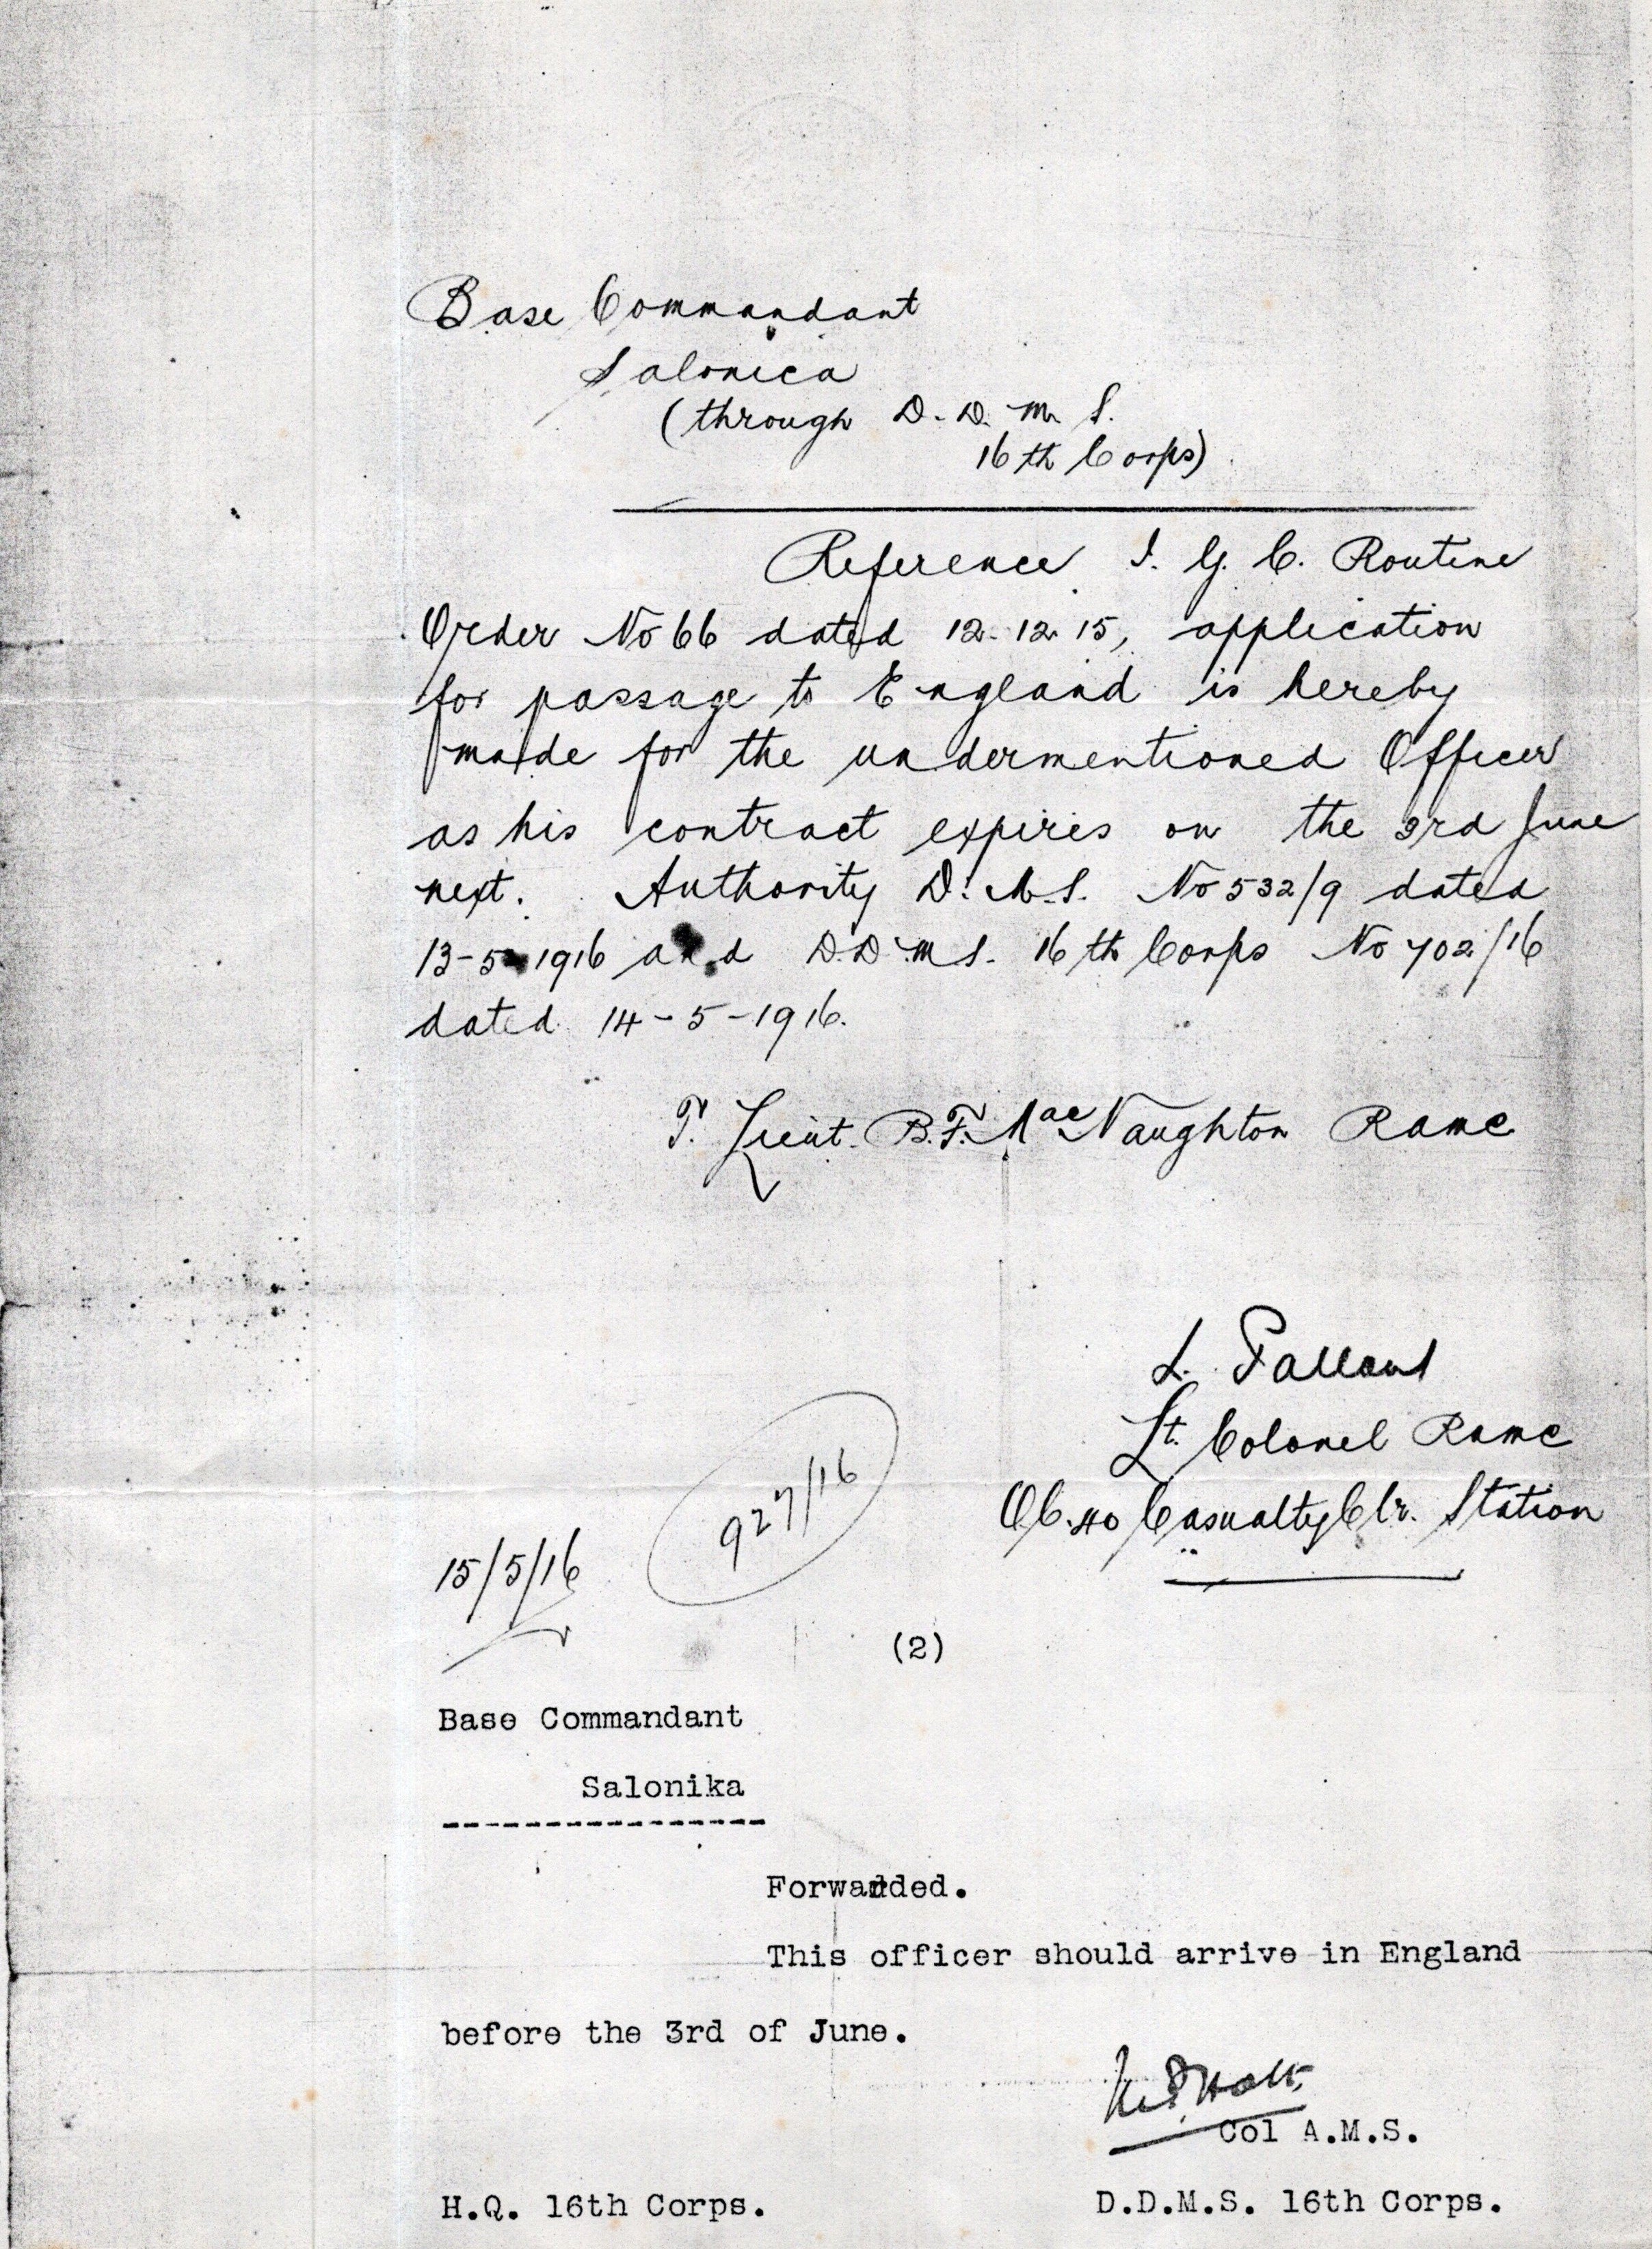 Base Commandant
Salonica
(through D. D. M. S.
16th Corps)
Reference I. G. C. Routine
Order No 66 dated 12.12.15, application
for passage to England is hereby
made for the undermentioned Officer
as his contract expires on the 3rd June
next. Authority D.M.S. No 532/9 dated
13-5-1916 and D.D.M.S. 16th Corps No 702/16
dated 14-5-1916.
T. Lieut. B.F. MacNaughton Ramc
L. Fallon
Lt. Colonel Ramc
OC. 40 Casualty Clr. Station
927/16
15/5/16
(2)
Base Commandant
Salonika
-----------------
Forwarded.
This officer should arrive in England
before the 3rd of June.
Holt
Col A.M.S.
H.Q. 16th Corps. D.D.M.S. 16th Corps.